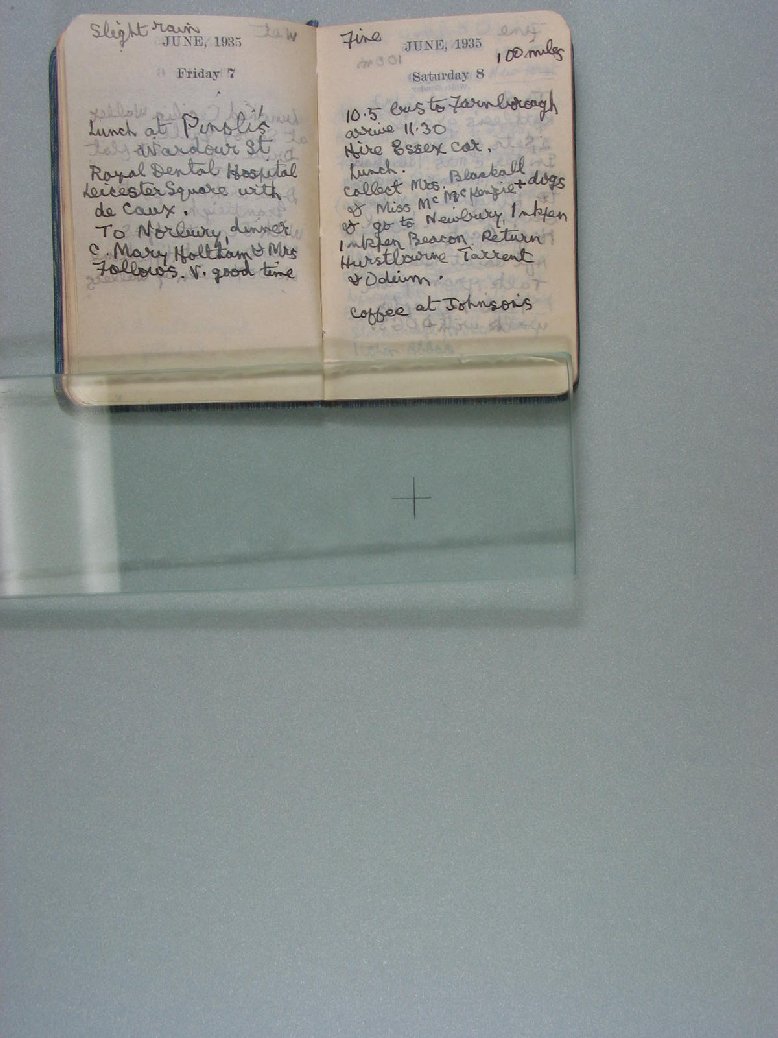 Slight rain
JUNE, 1935
Friday 7
Lunch at Pinoli's
Wardour St
Royal Dental Hospital
Leicester Square with
de Caux.
To Norbury, dinner
C. Mary Holtham & Mrs
Follows. V. good time
Fine
JUNE, 1935
100 miles
Saturday 8
10.5 bus to Farnborough
arrive 11.30
Hire Essex car.
Lunch.
collect Mrs. Blackall
& Miss Mc McKenzie + dogs
& go to Newbury, Inkpen
Inkpen Beacon. Return
Hurstbourne Tarrent
& Odium.
coffee at Johnson's